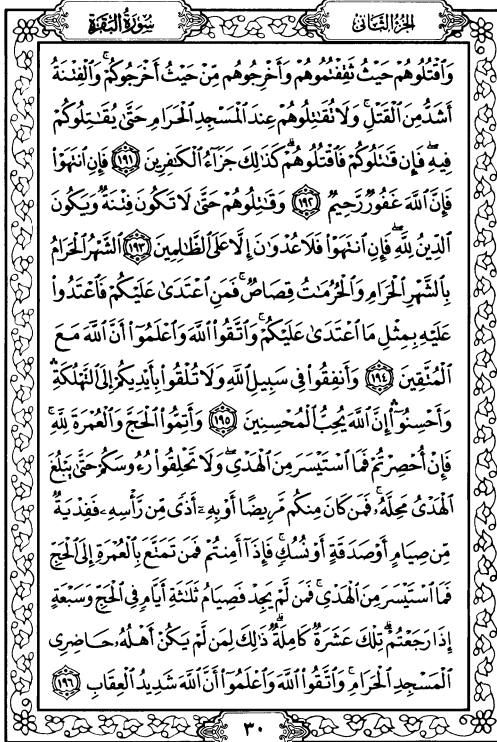 سُورَةُ البَقَرَةِ الجُزْءُ الثَّانِي
وَٱقْتُلُوهُمْ حَيْثُ ثَقِفْتُمُوهُمْ وَأَخْرِجُوهُم مِّنْ حَيْثُ أَخْرَجُوكُمْ ۚ وَٱلْفِتْنَةُ
أَشَدُّ مِنَ ٱلْقَتْلِ ۚ وَلَا تُقَٰتِلُوهُمْ عِندَ ٱلْمَسْجِدِ ٱلْحَرَامِ حَتَّىٰ يُقَٰتِلُوكُمْ
فِيهِ ۖ فَإِن قَٰتَلُوكُمْ فَٱقْتُلُوهُمْ ۗ كَذَٰلِكَ جَزَآءُ ٱلْكَٰفِرِينَ ١٩١ فَإِنِ ٱنتَهَوْا۟
فَإِنَّ ٱللَّهَ غَفُورٌ رَّحِيمٌ ١٩٢ وَقَٰتِلُوهُمْ حَتَّىٰ لَا تَكُونَ فِتْنَةٌ وَيَكُونَ
ٱلدِّينُ لِلَّهِ ۖ فَإِنِ ٱنتَهَوْا۟ فَلَا عُدْوَٰنَ إِلَّا عَلَى ٱلظَّٰلِمِينَ ١٩٣ ٱلشَّهْرُ ٱلْحَرَامُ
بِٱلشَّهْرِ ٱلْحَرَامِ وَٱلْحُرُمَٰتُ قِصَاصٌ ۚ فَمَنِ ٱعْتَدَىٰ عَلَيْكُمْ فَٱعْتَدُوا۟
عَلَيْهِ بِمِثْلِ مَا ٱعْتَدَىٰ عَلَيْكُمْ ۚ وَٱتَّقُوا۟ ٱللَّهَ وَٱعْلَمُوٓا۟ أَنَّ ٱللَّهَ مَعَ
ٱلْمُتَّقِينَ ١٩٤ وَأَنفِقُوا۟ فِى سَبِيلِ ٱللَّهِ وَلَا تُلْقُوا۟ بِأَيْدِيكُمْ إِلَى ٱلتَّهْلُكَةِ ۛ
وَأَحْسِنُوٓا۟ ۛ إِنَّ ٱللَّهَ يُحِبُّ ٱلْمُحْسِنِينَ ١٩٥ وَأَتِمُّوا۟ ٱلْحَجَّ وَٱلْعُمْرَةَ لِلَّهِ ۚ
فَإِنْ أُحْصِرْتُمْ فَمَا ٱسْتَيْسَرَ مِنَ ٱلْهَدْىِ ۖ وَلَا تَحْلِقُوا۟ رُءُوسَكُمْ حَتَّىٰ يَبْلُغَ
ٱلْهَدْىُ مَحِلَّهُۥ ۚ فَمَن كَانَ مِنكُم مَّرِيضًا أَوْ بِهِۦٓ أَذًى مِّن رَّأْسِهِۦ فَفِدْيَةٌ
مِّن صِيَامٍ أَوْ صَدَقَةٍ أَوْ نُسُكٍ ۚ فَإِذَآ أَمِنتُمْ فَمَن تَمَتَّعَ بِٱلْعُمْرَةِ إِلَى ٱلْحَجِّ
فَمَا ٱسْتَيْسَرَ مِنَ ٱلْهَدْىِ ۚ فَمَن لَّمْ يَجِدْ فَصِيَامُ ثَلَٰثَةِ أَيَّامٍ فِى ٱلْحَجِّ وَسَبْعَةٍ
إِذَا رَجَعْتُمْ ۗ تِلْكَ عَشَرَةٌ كَامِلَةٌ ۗ ذَٰلِكَ لِمَن لَّمْ يَكُنْ أَهْلُهُۥ حَاضِرِى
ٱلْمَسْجِدِ ٱلْحَرَامِ ۚ وَٱتَّقُوا۟ ٱللَّهَ وَٱعْلَمُوٓا۟ أَنَّ ٱللَّهَ شَدِيدُ ٱلْعِقَابِ ١٩٦
٣٠